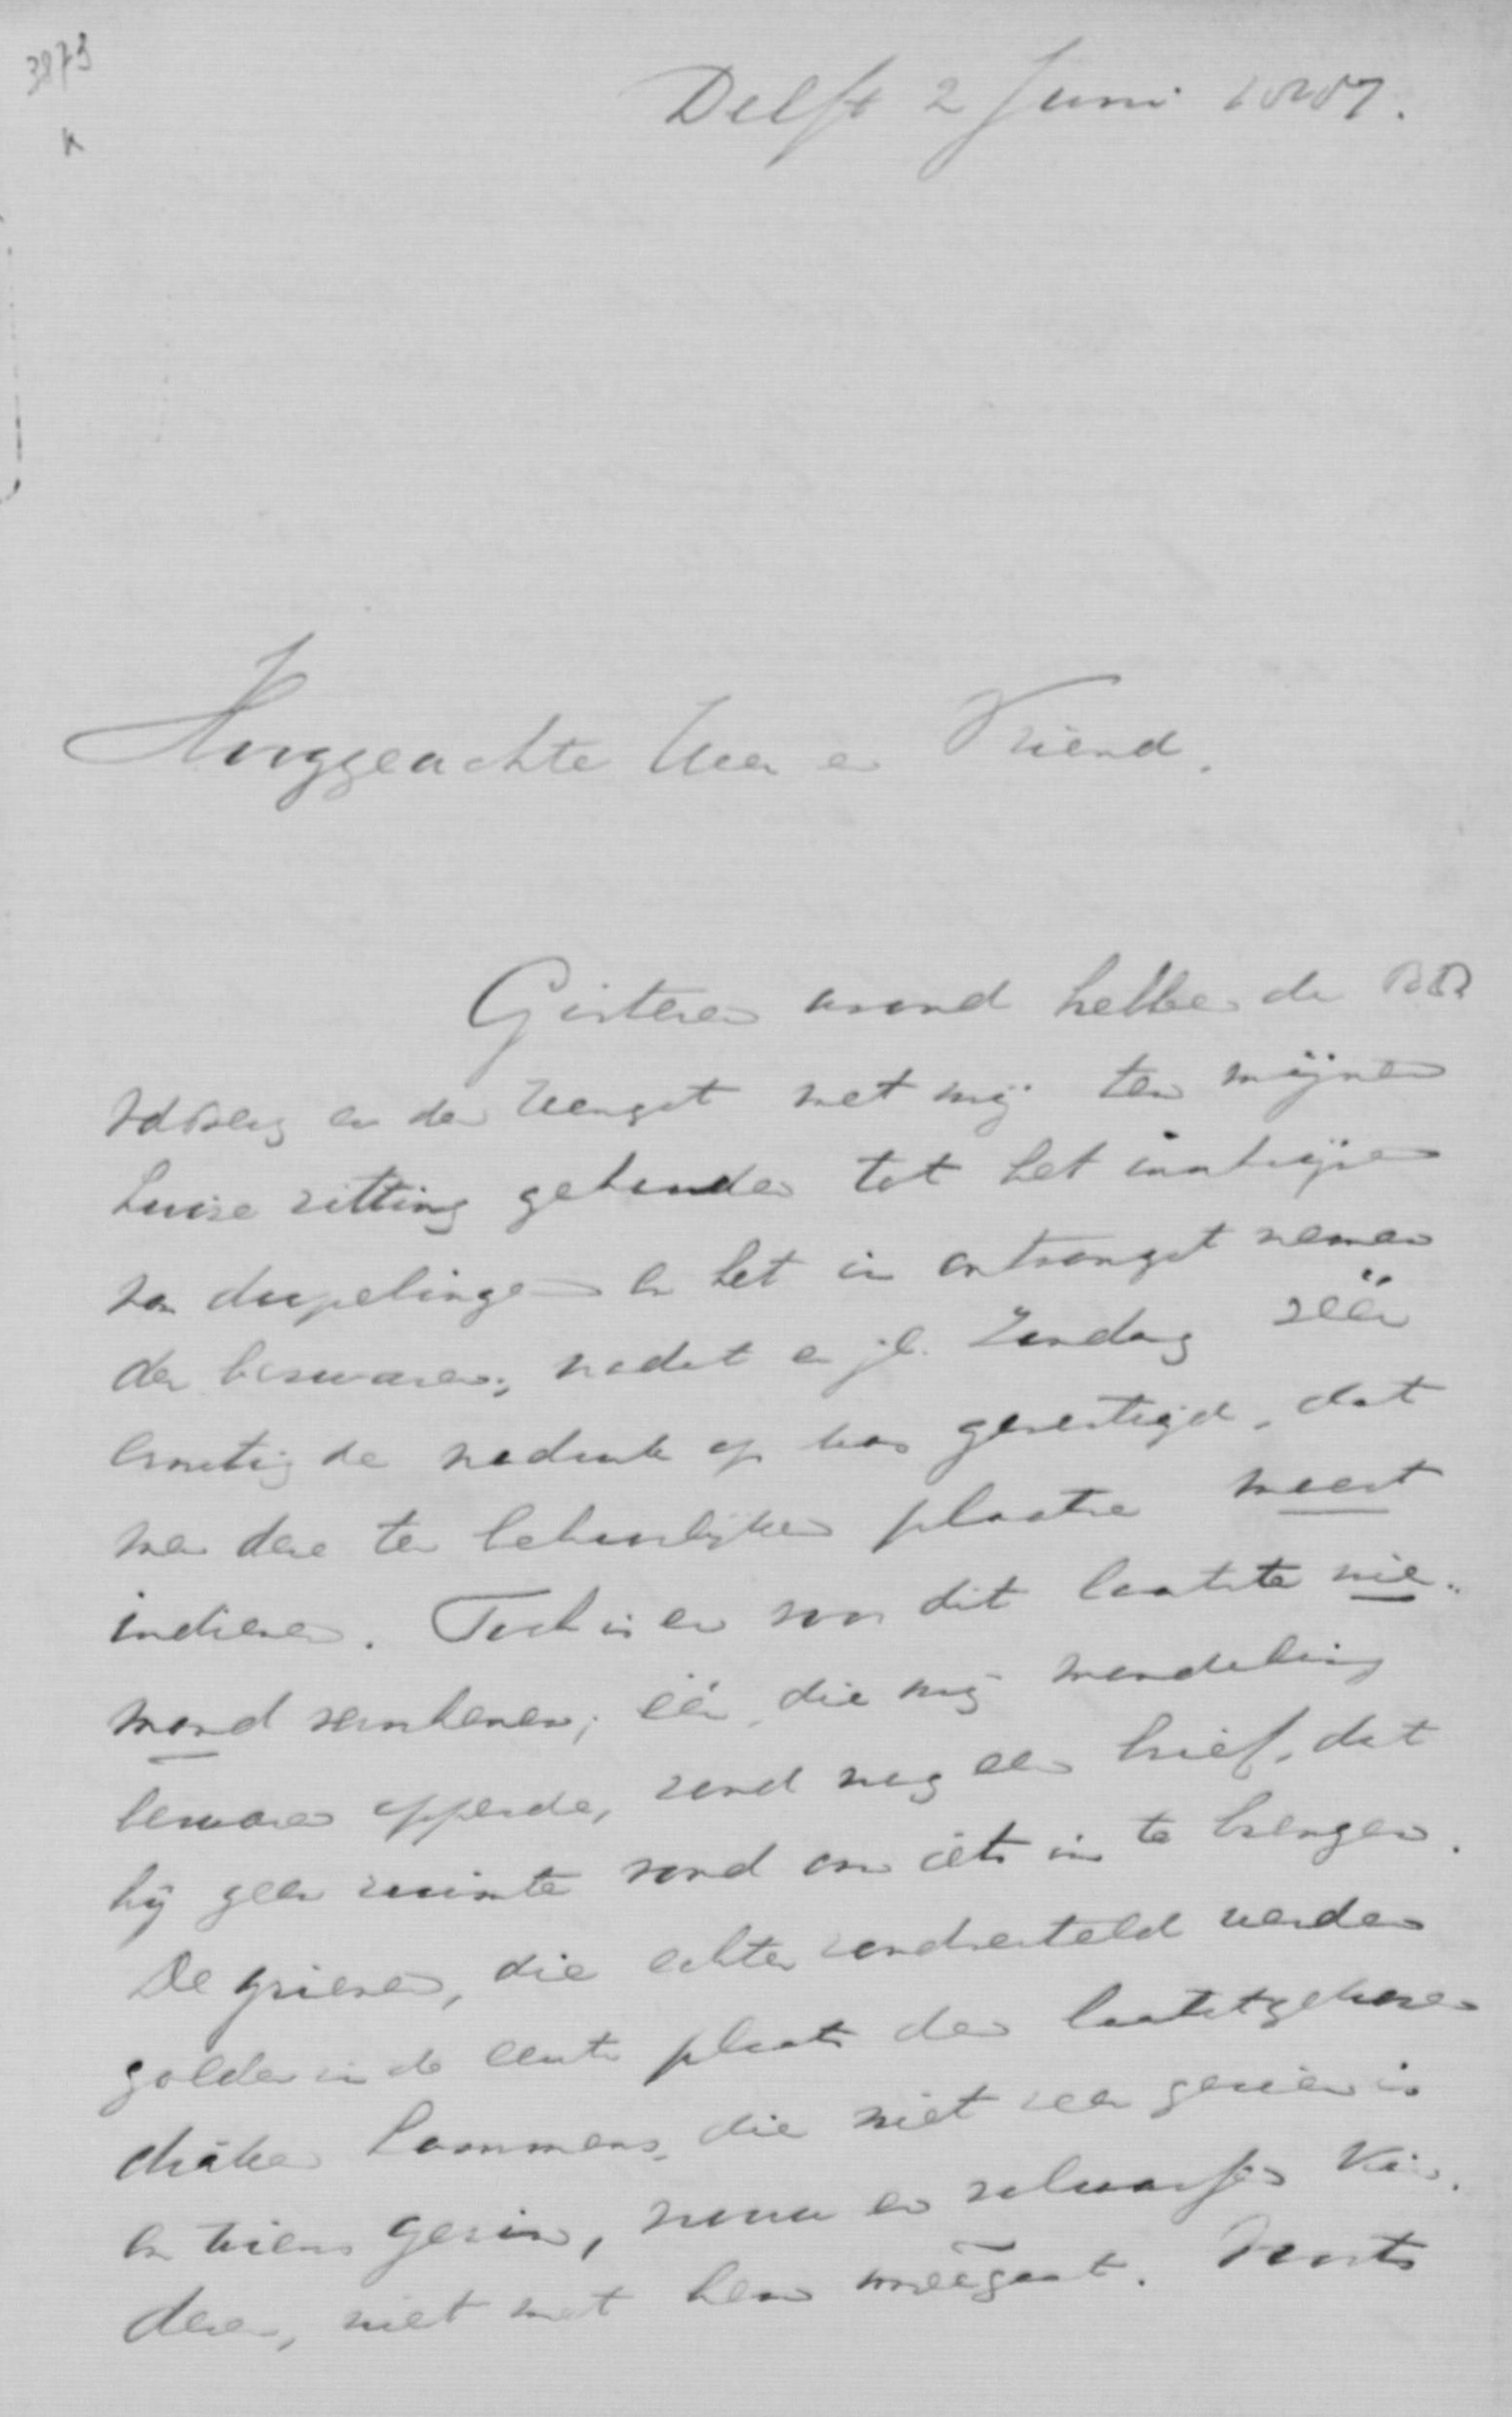 3879
K
Delft 2 Juni 1887.
Hooggeachte Heer en Vriend.
Gisteren avond hebben de BB
en der met mij ten mijnen
huize zitting gehouden tot het inschrijven
van doopelingen en het in ontvangst nemen
der bezwaren, nadat er jl. Zondag zéér
ernstig de nadruk op was gevestigd, dat
men deze ter behoorlijker plaatse moest
indienen. Toch is er voor dit laatste nie-
mand verschenen; één, die mij mondeling
bezwaren opperde, zond nog een brief, dat
hij geen ruimte vond om iets in te brengen.
De grieven, die echter rondverteld werden
golden in de eerste plaats den laatstgekozen
diaken Lammens, die niet zeer gezien is
en wiens gezin, vrouw en volwassen kin-
deren, niet met hem meegaat. Voorts